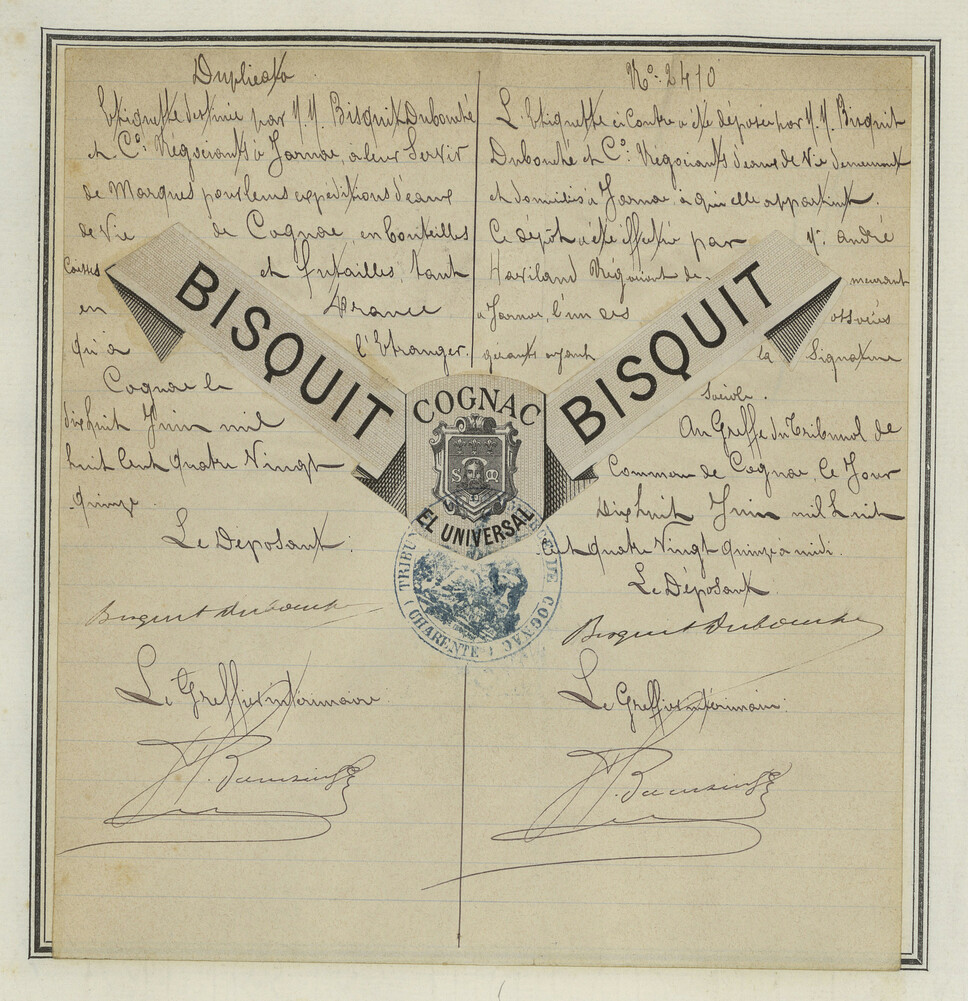 Duplicata
Etiquette destinée par M.M. Bisquit Dubouché
et Co. Négociants à Jarnac, à leur Servir
de Marques pour leurs expéditions d'eaux
de Vie de Cognac, en bouteilles
Caisses et futailles, tant
en France
qu'à l'Etranger.
Cognac le
dix huit Juin mil
huit Cent quatre Vingt
quinze.
Le Déposant.
Bisquit Dubouché
Le Greffier intérimaire
No: 2410
L'Etiquette ci Contre a été déposée par M.M. Bisquit
Dubouché et Co. Négociants d'eaux de Vie demeurant
et domiciliés à Jarnac, à qui elle appartient.
Ce dépôt a été effectué par Mr. André
Haviland Négociant de- meurant
à Jarnac, l'un des associés
gérants ayant la Signature
Sociale.
Au Greffe du Tribunal de
Commerce de Cognac, Ce Jour
Dix huit Juin mil huit
Cent quatre Vingt quinze à midi.
Le Déposant.
Bisquit Dubouché
Le Greffier intérimaire:
BISQUIT
BISQUIT
COGNAC
EL UNIVERSAL
TRIBUNAL DE COGNAC
(CHARENTE)